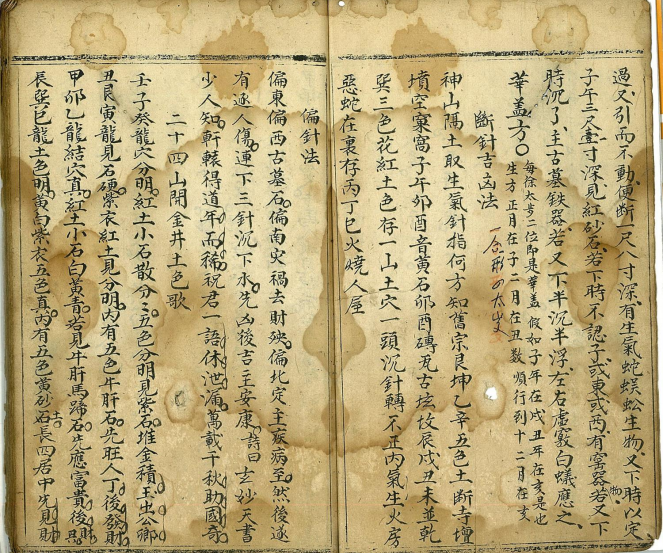 過又引而不動便斷一尺八寸深有生氣蛇蜈蚣生物又下時以定
子午三尺壹寸深見紅砂石若下時不認子或東或西有窑器物若又下
時沉了主古墓鉄器若又下半沉半浮左右虛竅白蟻應之
華盖方
每徐太歩二位即是華盖假如子年在戌丑年在亥是也
生方正月在子二月在丑数順行到十二月在亥
斷針吉凶法
神山陽土取生氣針指何方知舊宗艮坤乙辛五色土斷寺壇
墳空窠窩子午卯酉音黄石卯酉磚瓦古坟辰戌丑未並乾
巽三色花紅土色存一山土穴一頭沉針轉不正內氣生火房
惡蛇在裏存丙丁巳火燒人屋
偏針法
偏東偏西古墓石偏南灾禍去財殃偏北定主疾病至然後逐
有逐人傷連下三針沉下水先凶後吉主安康詩曰玄玅天書
少人知軒轅得道年高稀祝君一語休泄漏萬載千秋助國奇
二十四山開金井土色歌
壬子癸龍穴分明紅土小石散分々五色分明見紫石堆金積玉出公卿
丑艮寅龍見石硬紫衣紅土見分明內有五色牛肝石先旺人丁後發財
甲卯乙龍結穴真紅土小石白黃青若見牛肝馬蹄石先應富貴後
辰巽巳龍土色明黄白紫衣五色真內有五色黄砂石長四居中先見財